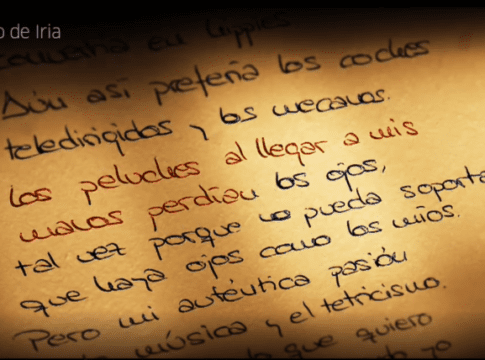 o de Iria
en hippies
Aún así prefería los coches
teledirigidos y los mecanos.
Los peluches al llegar a mis
manos perdían los ojos,
tal vez porque no pueda soporta
que haya ojos como los míos.
Pero mi auténtica pasión
la música y el tetricismo.
lo que quiero
yo